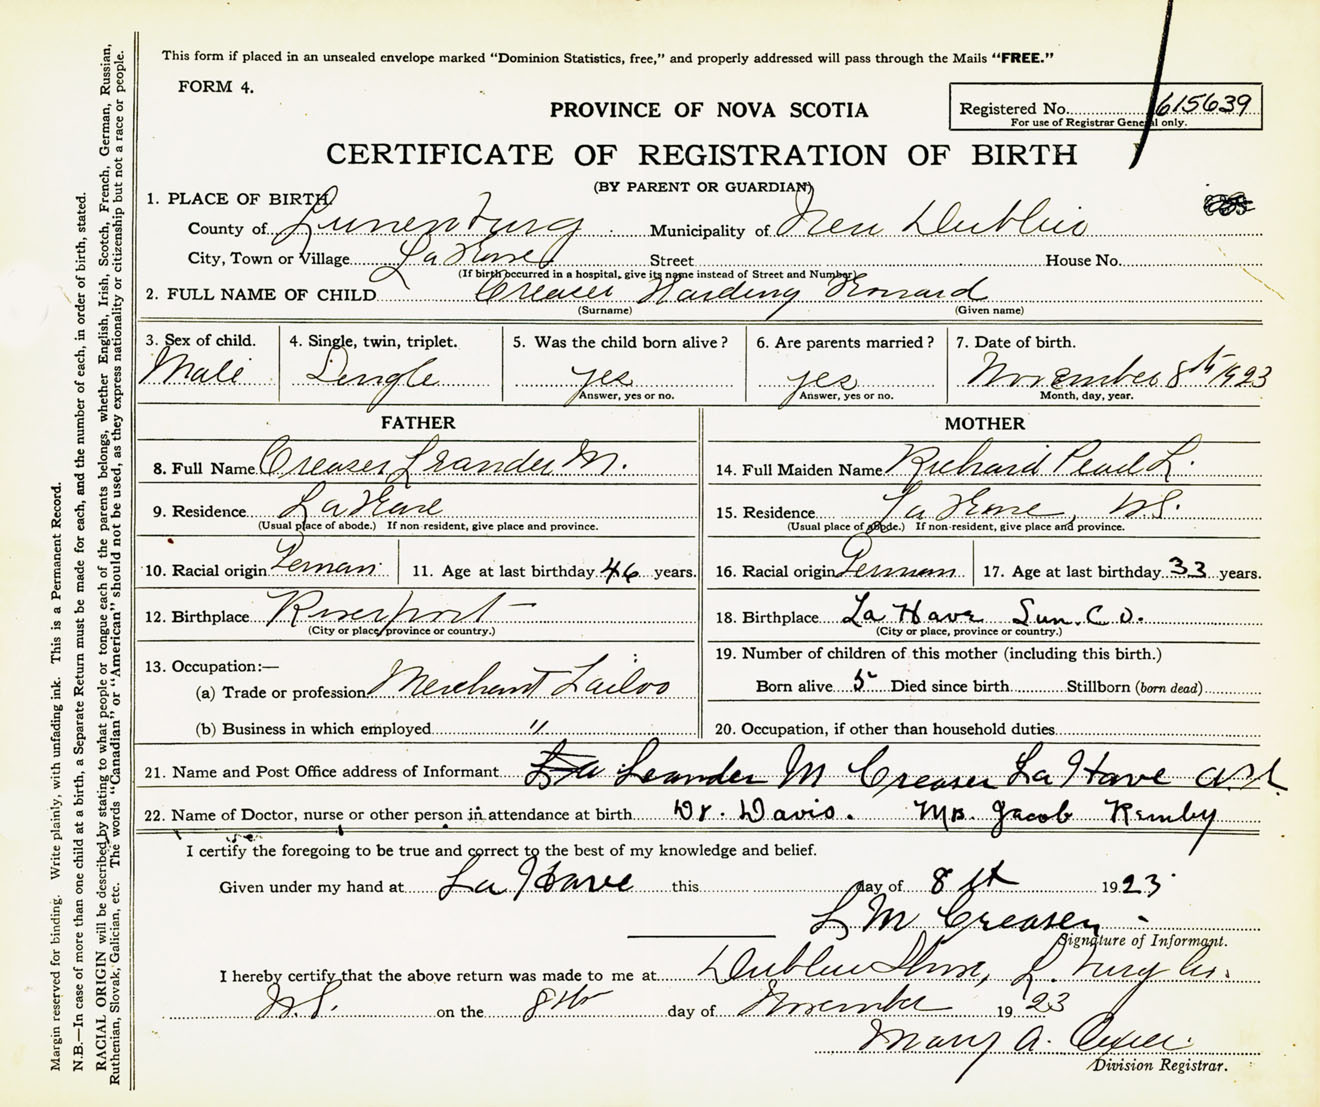 This form if placed in an unsealed envelope marked "Dominion Statistics, free," and properly addressed will pass through the Mails "FREE."
FORM 4.
PROVINCE OF NOVA SCOTIA
Registered No. 615639
For use of Registrar General only.
CERTIFICATE OF REGISTRATION OF BIRTH
(BY PARENT OR GUARDIAN)
1. PLACE OF BIRTH.
County of Lunenburg Municipality of New Dublin
City, Town or Village La Have Street House No.
(If birth occurred in a hospital, give its name instead of Street and Number)
2. FULL NAME OF CHILD Creaser Harding
(Surname) (Given name)
3. Sex of child. 4. Single, twin, triplet. 5. Was the child born alive? 6. Are parents married? 7. Date of birth.
Male Single yes yes November 8th 1923
Answer, yes or no. Answer, yes or no. Month, day, year.
FATHER MOTHER
8. Full Name Creaser Leander M. 14. Full Maiden Name Richard Pearl L.
9. Residence La Have 15. Residence La Have, N.S.
(Usual place of abode.) If non-resident, give place and province. (Usual place of abode.) If non-resident, give place and province.
10. Racial origin German 11. Age at last birthday 46 years. 16. Racial origin German 17. Age at last birthday 33 years.
12. Birthplace Riverport 18. Birthplace La Have Lun. Co.
(City or place, province or country.) (City or place, province or country.)
13. Occupation:— 19. Number of children of this mother (including this birth.)
(a) Trade or profession Merchant Born alive 5 Died since birth Stillborn (born dead)
(b) Business in which employed " 20. Occupation, if other than household duties
21. Name and Post Office address of Informant Leander M Creaser La Have
22. Name of Doctor, nurse or other person in attendance at birth Dr. Davis. Mrs. Jacob
I certify the foregoing to be true and correct to the best of my knowledge and belief.
Given under my hand at La Have this day of 8th 1923
L M Creaser
Signature of Informant.
I hereby certify that the above return was made to me at Dublin Shore,
N.S. on the 8th day of November 1923
Mary A.
Division Registrar.
Margin reserved for binding. Write plainly, with unfading ink. This is a Permanent Record.
N.B.—In case of more than one child at a birth, a Separate Return must be made for each, and the number of each, in order of birth, stated.
RACIAL ORIGIN will be described by stating to what people or tongue each of the parents belongs, whether English, Irish, Scotch, French, German, Russian,
Ruthenian, Slovak, Galician, etc. The words "Canadian" or "American" should not be used, as they express nationality or citizenship but not a race or people.